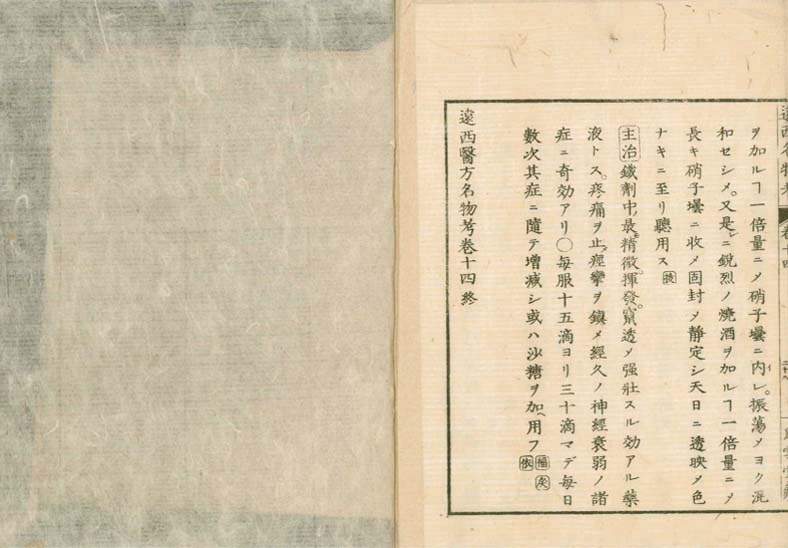 遠西名物考
卷十四
ヲ加ルヿ一倍量ニ〆硝子壜ニ内レ。振蕩〆ヨク混
和セシメ。又是ニ鋭烈ノ燒酒ヲ加ルヿ一倍量ニ〆
長キ硝子壜ニ收メ固封〆靜定シ天日ニ透映〆色
ナキニ至リ聽用ス 扶
主治 鐵劑中。最精微。揮發。竄透〆強壯スル効アル藥
液トス。疼痛ヲ止。痙攣ヲ鎮メ經久ノ神經衰弱ノ諸
症ニ奇効アリ〇每服十五滴ヨリ三十滴マデ每日
數次其症ニ隨テ增減シ或ハ沙糖ヲ加ヘ用フ 福 矣 依
遠西醫方名物考卷十四終